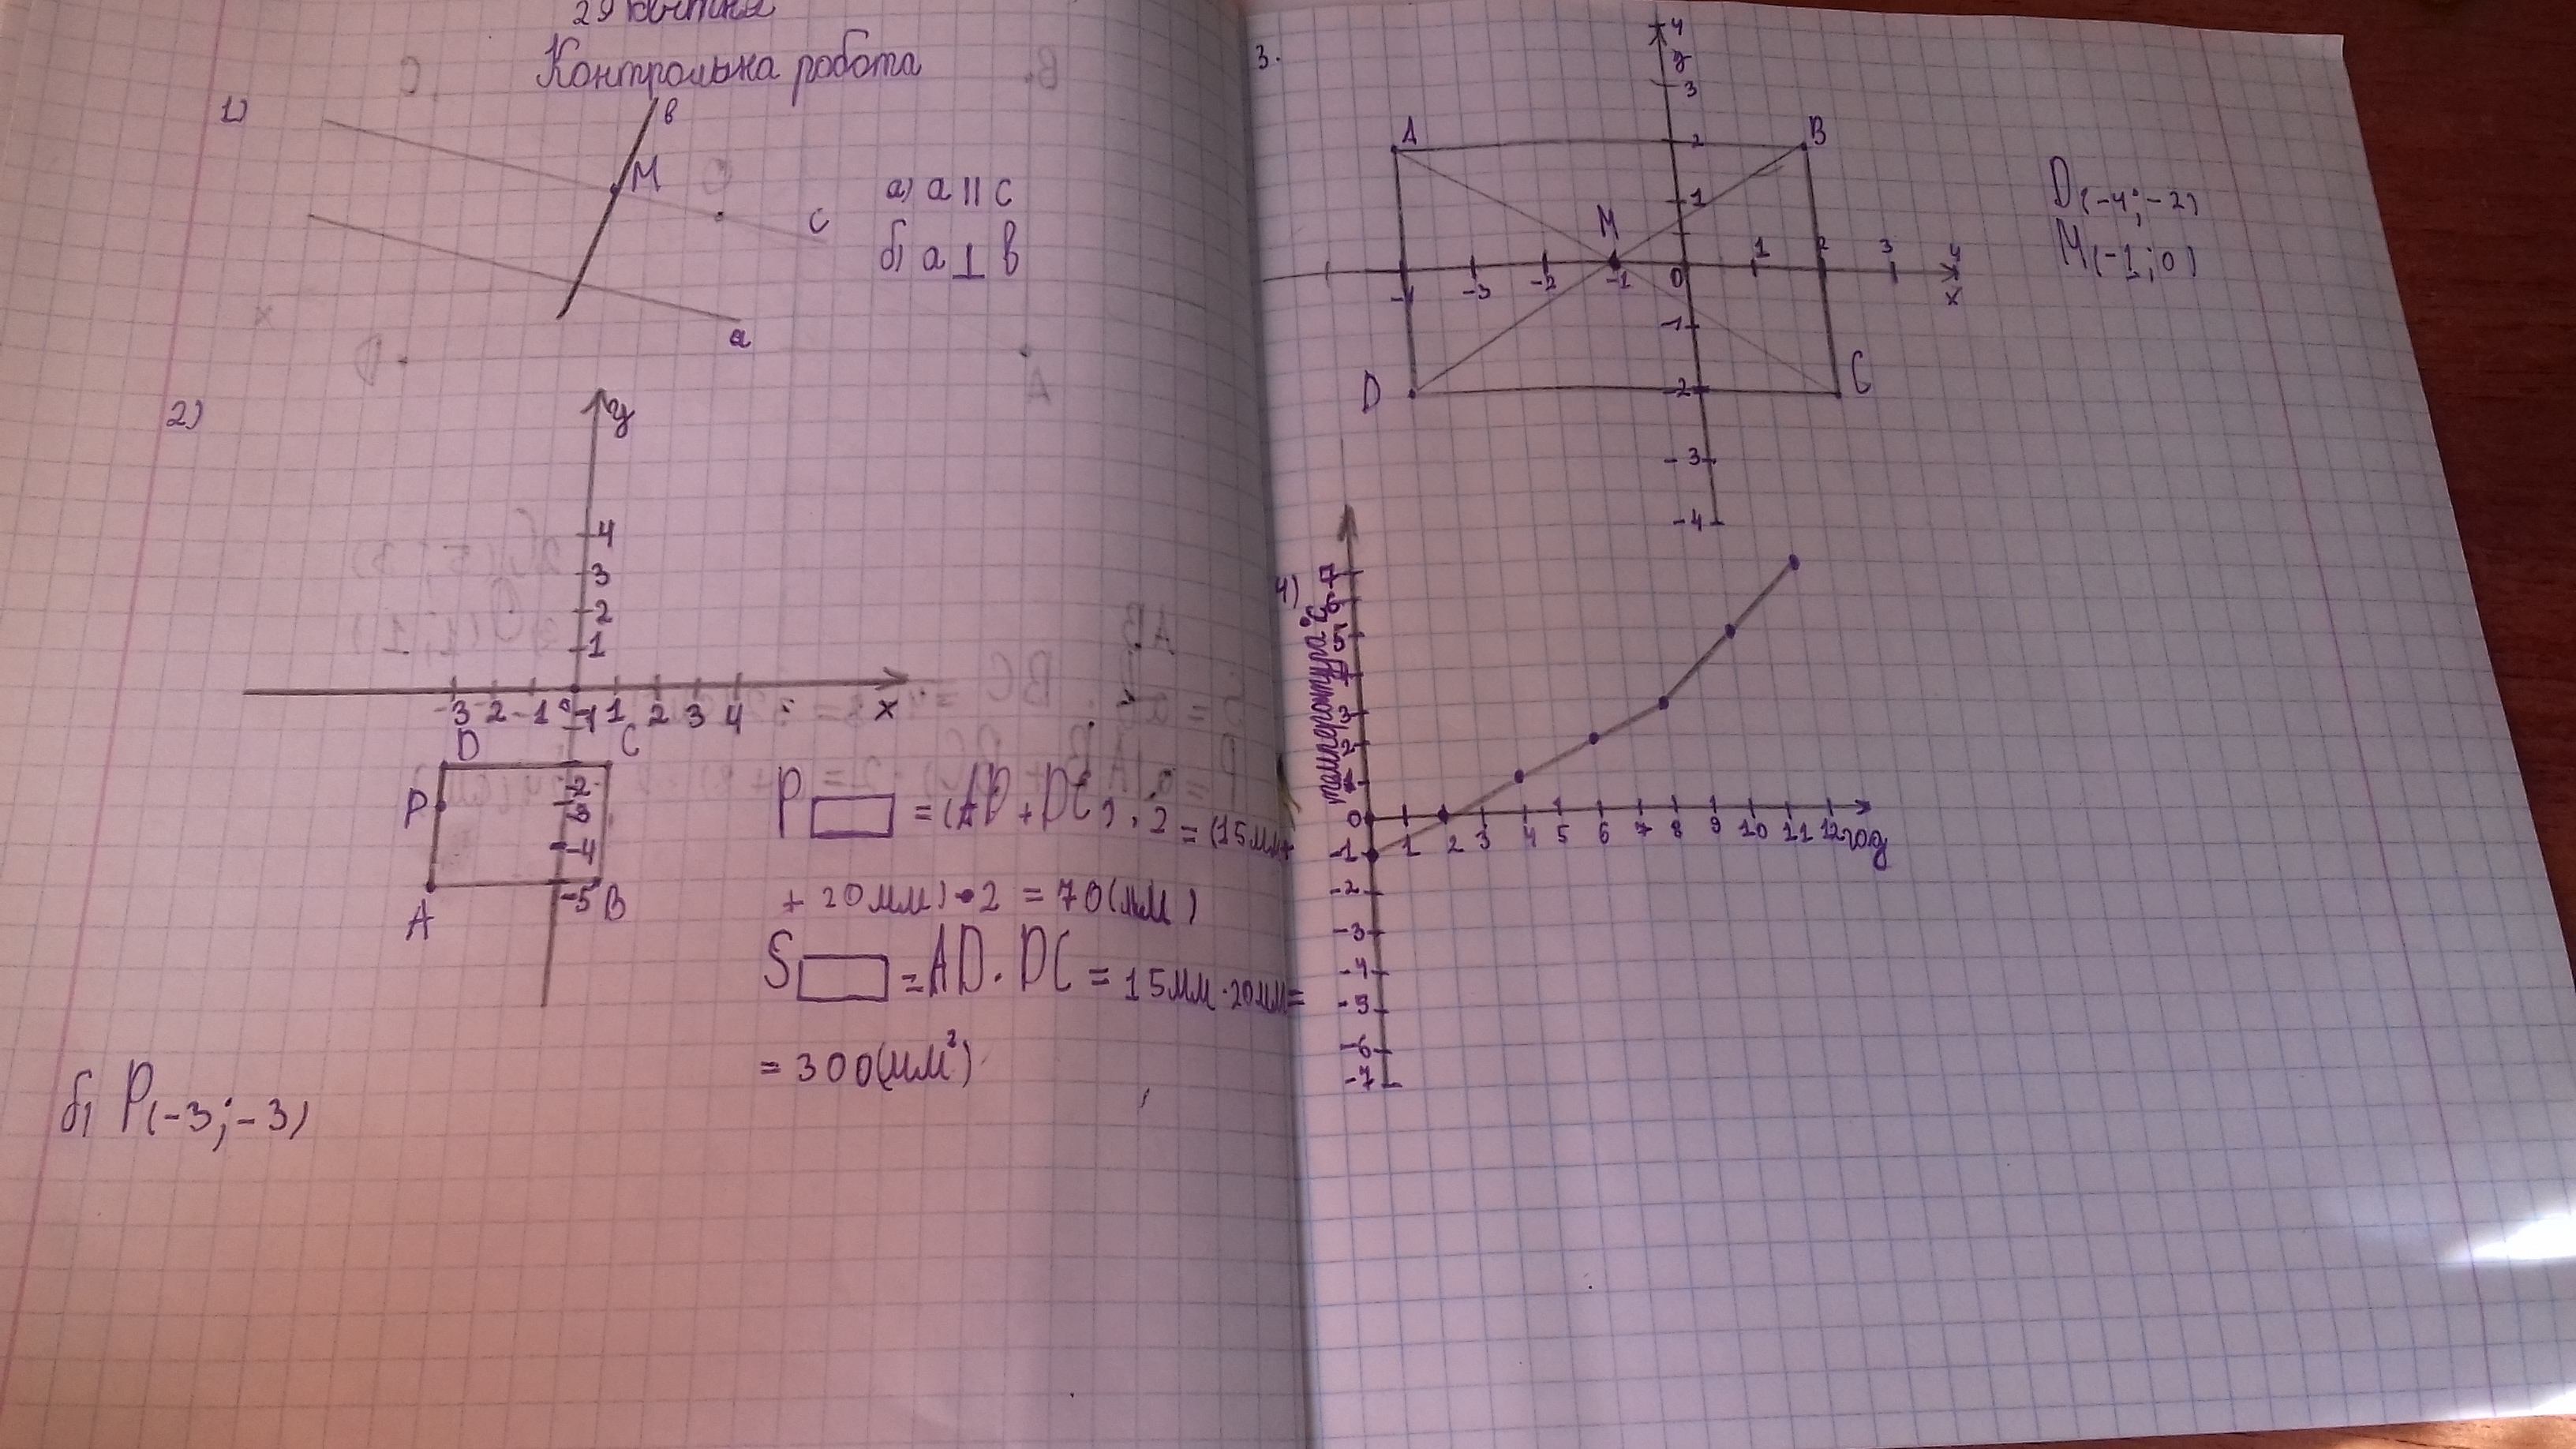 29 квітня
Контрольна робота
1)
в
М
с
а
а) а || с
б) а ⊥ в
2)
у
4
3
2
1
-3 -2 -1 0 1 2 3 4 х
-1
D C
-2
P
-3
-4
-5
A B
P▭ = (AD + DC) · 2 = (15мм +
+ 20мм) · 2 = 70(мм)
S▭ = AD · DC = 15мм · 20мм =
= 300(мм²)
б) P(-3; -3)
3.
4
у
3
A 2 B
1
M
-4 -3 -2 -1 0 1 2 3 4
х
-1
D -2 C
-3
-4
D(-4; -2)
M(-1; 0)
4)
температура °C
7
6
5
4
3
2
1
0
-1 1 2 3 4 5 6 7 8 9 10 11 12 год
-2
-3
-4
-5
-6
-7